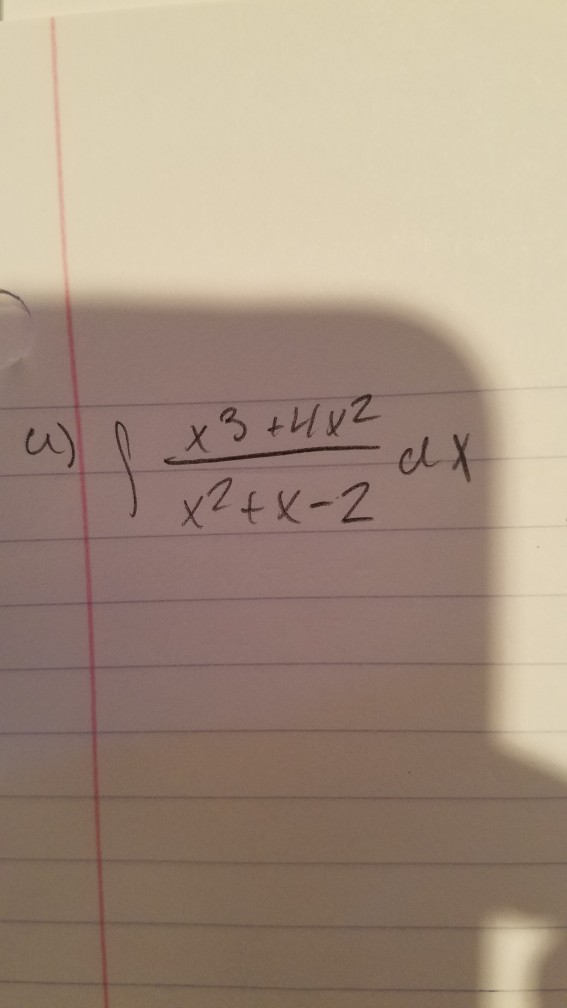 a) ∫ x³+4x² / x²+x-2 dx